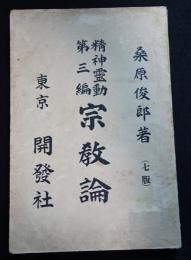 桑原俊郎著
(七版)
精神靈動
第三編
宗教論
東京 開發社